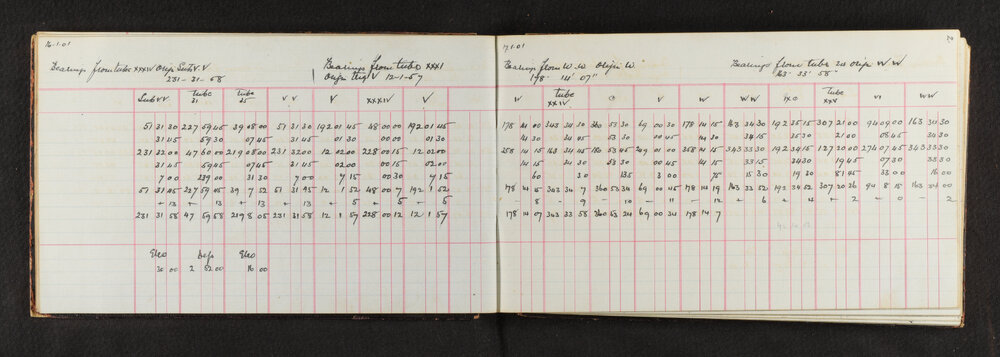 16-1-01
Bearings from tube XXXIV Origin Sub V.V
231-31-58
Bearings from tube XXXI
Origin Trig V 12-1-57
Sub VV tube 31 tube 35 VV V XXXIV V
51 31 30 227 59 45 39 08 00 51 31 30 192 01 45 48 00 00 192 01 45
31 45 59 30 07 45 31 45 01 30 00 00 01 30
231 32 00 47 60 00 219 08 00 231 32 00 12 02 00 228 00 15 12 02 00
31 45 59 45 07 45 31 45 02 00 00 15 02 00
7 00 239 00 31 30 7 00 7 15 00 30 7 15
51 31 45 227 59 45 39 7 52 51 31 45 192 1 52 48 00 7 192 1 52
+ 13 + 13 + 13 + 13 + 5 + 5 + 5
231 31 58 47 59 58 219 8 05 231 31 58 12 1 57 228 00 12 12 1 57
30 00 2 52 00 16 00
17-1-01
2
Bearings from W.W Origin W.
178° 14' 07"
Bearings from tube 24 Origin WW
163° 33' 58"
W tube XXIV C V W WW IXC tube XXV VI WW
178 14 00 343 34 30 360 53 30 69 00 30 178 14 15 163 34 30 192 35 15 307 21 00 94 09 00 163 34 30
14 30 34 45 53 30 00 45 14 30 34 15 35 30 21 00 08 45 34 30
358 14 15 163 34 45 180 53 45 249 01 00 358 14 15 343 33 30 192 34 15 127 20 00 274 07 45 343 33 30
14 15 34 30 53 30 00 45 14 15 33 15 34 30 19 45 07 30 33 30
60 30 135 3 00 75 15 30 19 30 81 45 33 00 16 00
178 14 15 343 34 7 360 53 34 69 00 45 178 14 19 163 33 52 192 34 52 307 20 26 94 8 15 163 34 00
- 8 - 9 - 10 - 11 - 12 + 6 + 4 + 2 + 0 - 2
178 14 07 343 33 58 360 53 24 69 00 34 178 14 7